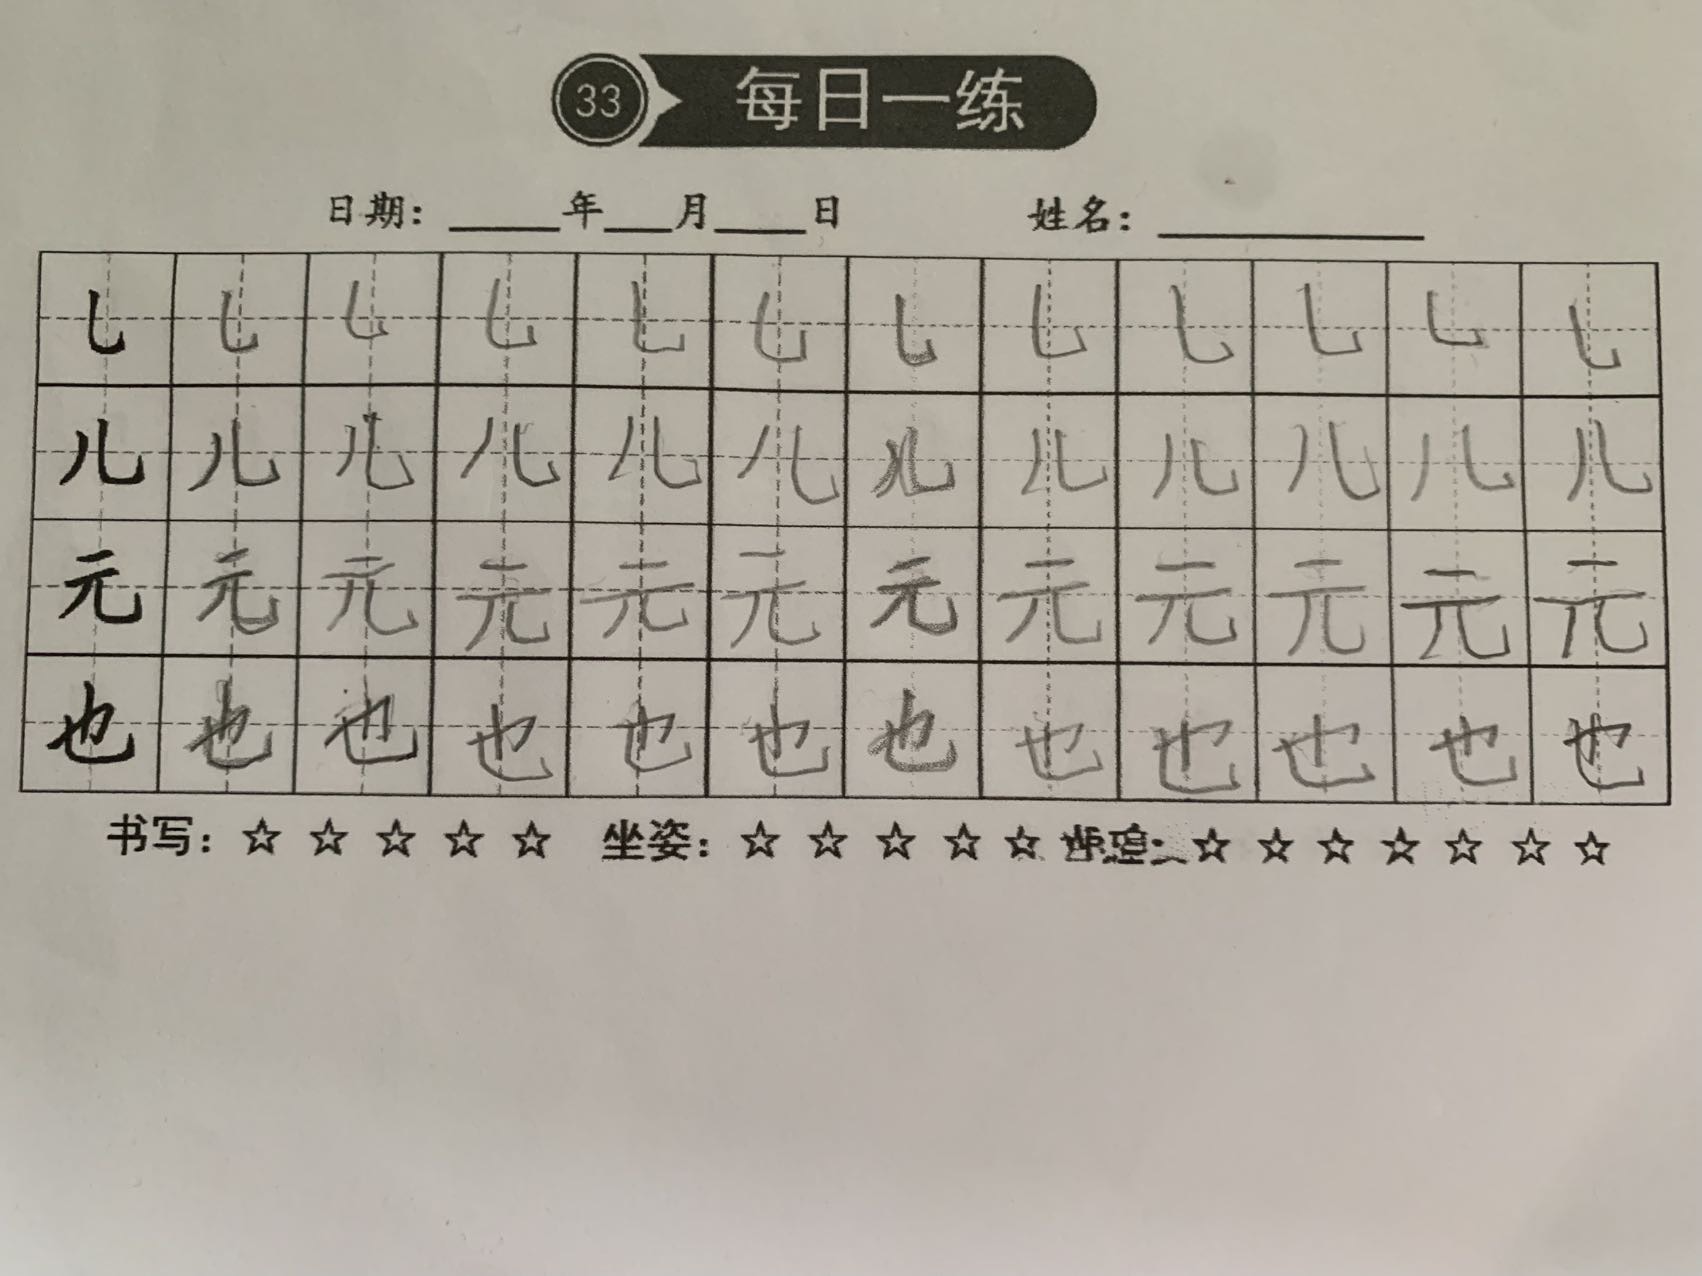 33 每日一练
日期：____年___月____日 姓名：____________
乚 乚 乚 乚 乚 乚 乚 乚 乚 乚 乚 乚
儿 儿 儿 儿 儿 儿 儿 儿 儿 儿 儿 儿
元 元 元 元 元 元 元 元 元 元 元 元
也 也 也 也 也 也 也 也 也 也 也 也
书写：☆ ☆ ☆ ☆ ☆ 坐姿：☆ ☆ ☆ ☆ ☆ ☆ ☆ ☆ ☆ ☆ ☆ ☆